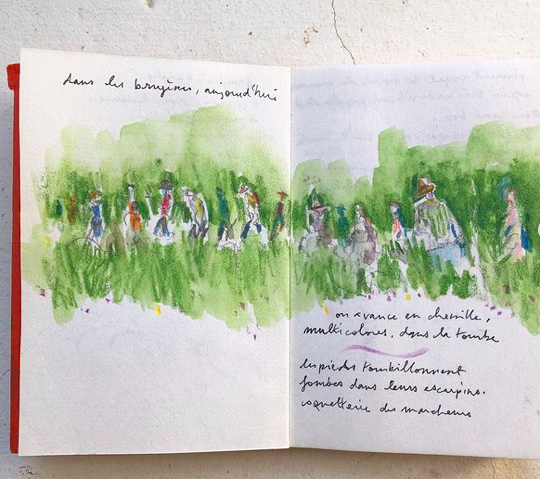 dans les bruyères, aujourd'hui
on avance en chenille,
multicolores, dans la tourbe
les pieds tourbillonnent
bombés dans leurs escarpins.
coquetterie des marcheurs